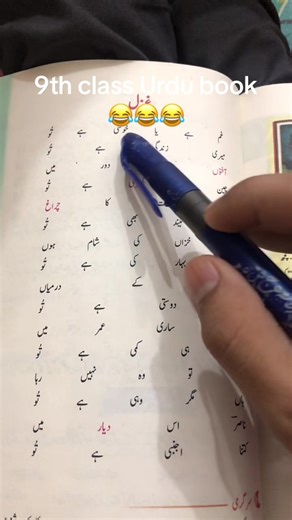 9th class Urdu book
غزل
😂😂😂
غم ہے یا خوشی ہے تُو
میری زندگی ہے تُو
آفتوں دور میں
چین ہے تُو
کا چراغ
نیند بھی ہے تُو
خزاں کی شام ہوں
بہار کی ہے تُو
کے درمیاں
دوستی ہے تُو
ساری عمر میں
ہی کمی ہے تُو
تو وہ نہیں رہا
ہاں مگر وہی ہے تُو
ناصرؔ اس دیار میں
کتنا اجنبی ہے تُو